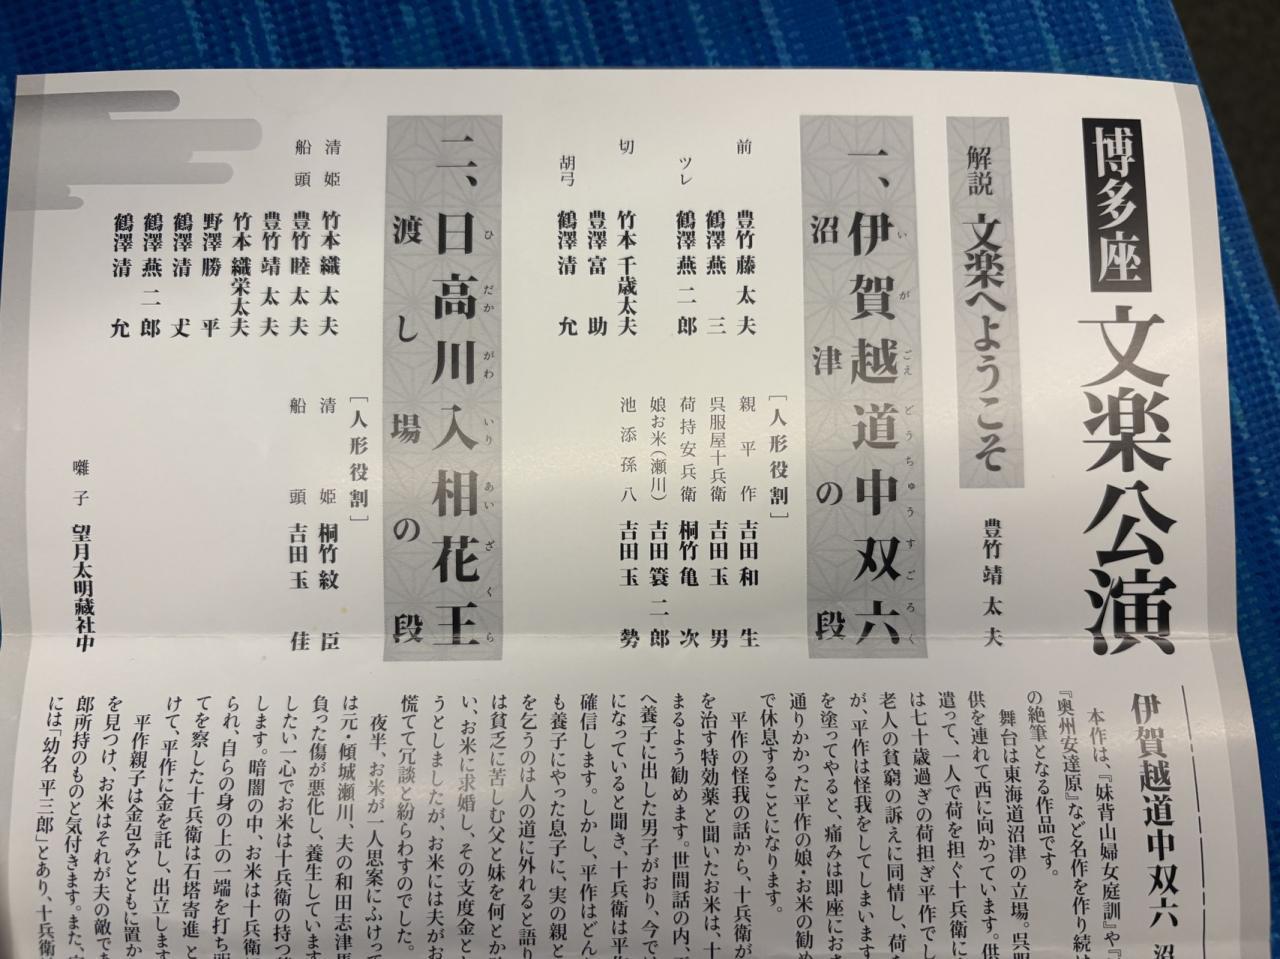 博多座 文楽公演
解説 文楽へようこそ
豊竹靖太夫
一、伊賀越道中双六
いがごえどうちゅうすごろく
沼津の段
前 豊竹藤太夫
鶴澤燕三
ツレ 鶴澤燕二郎
切 竹本千歳太夫
豊澤富助
胡弓 鶴澤清允
［人形役割］
親平作 吉田和生
呉服屋十兵衛 吉田玉男
荷持安兵衛 桐竹亀次
娘お米（瀬川） 吉田簑二郎
池添孫八 吉田玉勢
二、日高川入相花王
ひだかがわいりあいざくら
渡し場の段
清姫 竹本織太夫
船頭 豊竹睦太夫
豊竹靖太夫
竹本織栄太夫
野澤勝平
鶴澤清𠀋
鶴澤燕二郎
鶴澤清允
［人形役割］
清姫 桐竹紋臣
船頭 吉田玉佳
囃子 望月太明藏社中
伊賀越道中双六 沼
本作は、『妹背山婦女庭訓』や『
『奥州安達原』など名作を作り続け
の絶筆となる作品です。
舞台は東海道沼津の立場。呉服
供を連れて西に向かっています。供
遣って、一人で荷を担ぐ十兵衛に
は七十歳過ぎの荷担ぎ平作でし
老人の貧窮の訴えに同情し、荷を
が、平作は怪我をしてしまいます
を塗ってやると、痛みは即座におさ
通りかかった平作の娘・お米の勧め
で休息することになります。
平作の怪我の話から、十兵衛が
を治す特効薬と聞いたお米は、十
まるよう勧めます。世間話の内、平
へ養子に出した男子がおり、今では
になっていると聞き、十兵衛は平作
確信します。しかし、平作はどん
も養子にやった息子に、実の親と
を乞うのは人の道に外れると語り
は貧乏に苦しむ父と妹を何とか助
い、お米に求婚し、その支度金と
うとしましたが、お米には夫がお
慌てて冗談と紛らわすのでした。
夜半、お米が一人思案にふけって
は元・傾城瀬川、夫の和田志津馬
負った傷が悪化し、養生しています
したい一心でお米は十兵衛の持つ薬
します。暗闇の中、お米は十兵衛に
られ、自らの身の上の一端を打ち明
てを察した十兵衛は石塔寄進と
けて、平作に金を託し、出立します
平作親子は金包みとともに置か
を見つけ、お米はそれが夫の敵であ
郎所持のものと気付きます。また、
には「幼名 平三郎」とあり、十兵衛